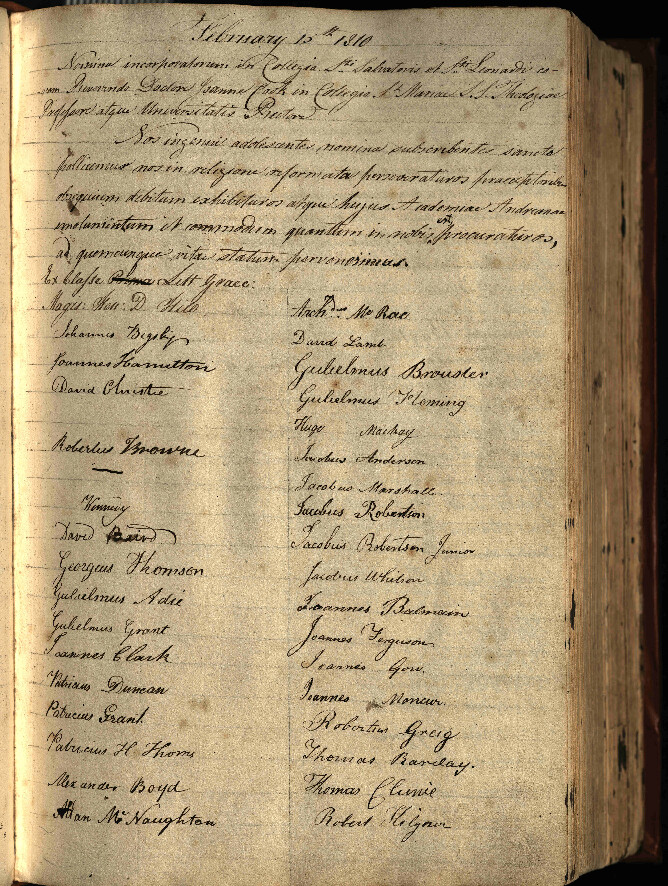 February 15th 1810
Nomina incorporatorum in Collegia Sti Salvatoris et Sti Leonardi co-
ram Reverendo Doctore Joanne Cook in Collegio Stae Mariae S.S. Theologiae
Professore atque Universitatis Rectore
Nos ingenui adolescentes, nomina subscribentes sancte
pollicemur nos in religione reformata perseveraturos praeceptoribus
obsequium debitum exhibituros atque hujus Academiae Andreanae
emolumentum et commodum quantum in nobis est procuraturos,
ad quemcunque vitae statum pervenerimus.
Ex Classe Litt Graec:
Magis: Hen: D. Hill
Johannes Digsby
Joannes Hamilton
David Christie
Robertus Browne
Kennedy
David Baird
Georgeus Thomson
Gulielmus Adie
Gulielmus Grant
Joannes Clark
Patricius Duncan
Patricius Grant
Patricius H Thoms
Alexander Boyd
Allan McNaughton
Archdus Mc Rae
David Lamb
Gulielmus Brouster
Gulielmus Fleming
Hugo Mackay
Jacobus Anderson
Jacobus Marshall
Jacobus Robertson
Jacobus Robertson Junior
Jacobus Whitson
Joannes Balmain
Joannes Ferguson
Joannes Gow.
Joannes Moncur.
Robertus Greig
Thomas Barclay.
Thomas Clunie
Robert Kilgour